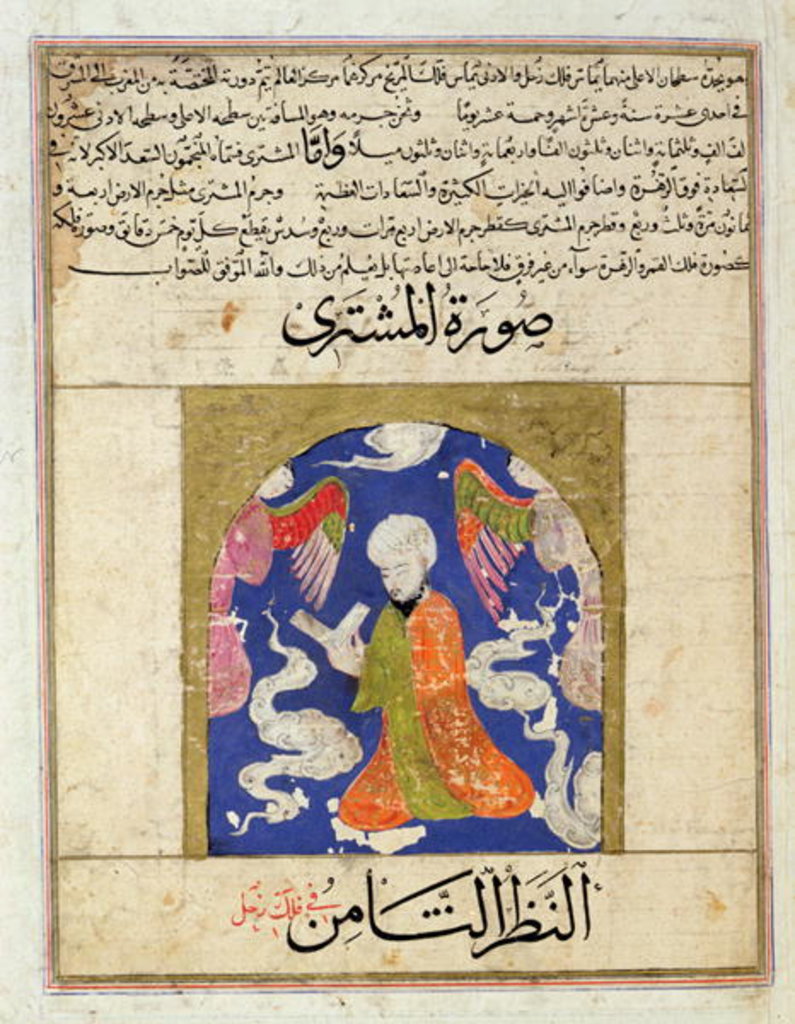 هو يحده سطحان الاعلى منهما يماس فلك زحل والادنى يماس فلك المريخ مركزهما مركز العالم يتم دورته المختصة به من المغرب الى المشرق
فى احدى عشرة سنة وعشرة اشهر وخمسة عشر يوما وثخن جرمه وهو المسافة بين سطحه الاعلى وسطحه الادنى عشرون
الف الف وثلثماية واثنان وثلثون الفا واربعماية واثنان وثلثون ميلا واما المشترى فسماه المنجمون السعد الاكبر لانه فى
السعادة فوق الزهرة واضافوا اليه الخيرات الكثيرة والسعادات العظيمة وجرم المشترى مثل جرم الارض اربعة و
ثمانون مرة وثلث وربع وقطر جرم المشترى كقطر جرم الارض اربع مرات وربع وسدس يقطع كل يوم خمس دقائق وصورة فلكه
كصورة فلك القمر والزهرة سواء من غير فرق فلا حاجة الى اعادتها بل يعلم من ذلك والله الموفق للصواب
صورة المشترى
النظر الثامن فى فلك زحل